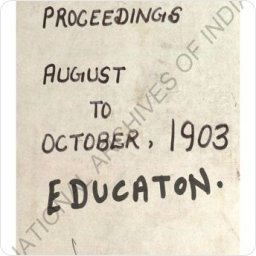 PROCEEDINGS
AUGUST
TO
OCTOBER, 1903
EDUCATON.
NATIONAL ARCHIVES OF INDIA